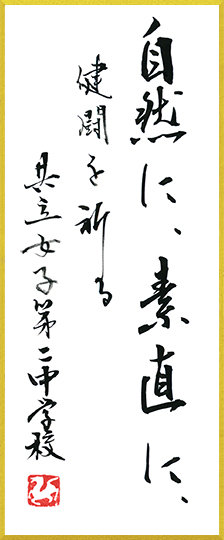 自然に、素直に、
健闘を祈る
共立女子第二中学校